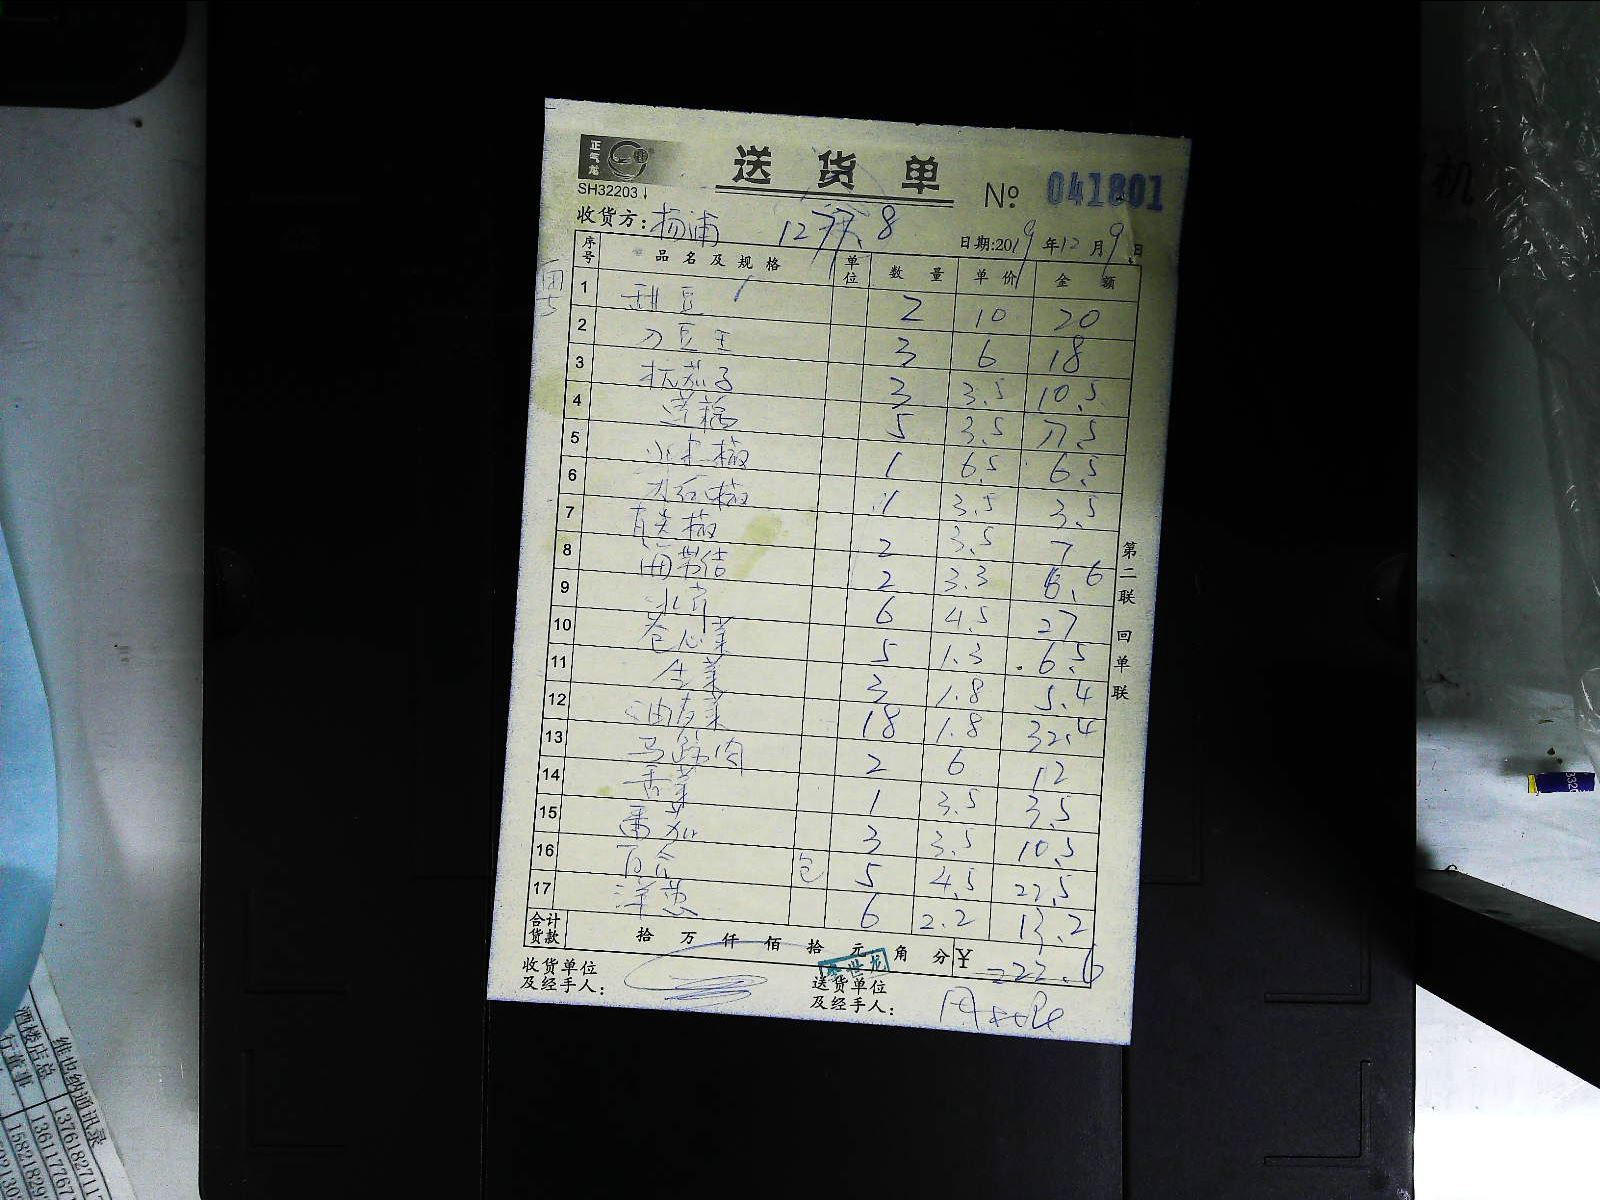 正气龙
送货单
SH32203
№ 041801
收货方: 杨浦 12 8
日期:2019年12月9日
序号 品名及规格 单位 数量 单价 金额
1 甜豆 2 10 20
2 刀豆王 3 6 18
3 杭茄子 3 3.5 10.5
4 莲藕 5 3.5 17.5
5 尖椒 1 6.5 6.5
6 大红椒 1 3.5 3.5
7 青尖椒 2 3.5 7
8 海带结 2 3.3 6.6
9 6 4.5 27
10 卷心菜 5 1.3 6.5
11 生菜 3 1.8 5.4
12 油麦菜 18 1.8 32.4
13 2 6 12
14 菜 1 3.5 3.5
15 番茄 3 3.5 10.5
16 百合 包 5 4.5 22.5
17 洋葱 6 2.2 13.2
合计货款 拾 万 仟 佰 拾 元 角 分 ¥ 222.6
收货单位及经手人:
送货单位及经手人:
世龙
第二联 回单联
机
维也纳通讯录
酒楼店总
行董事